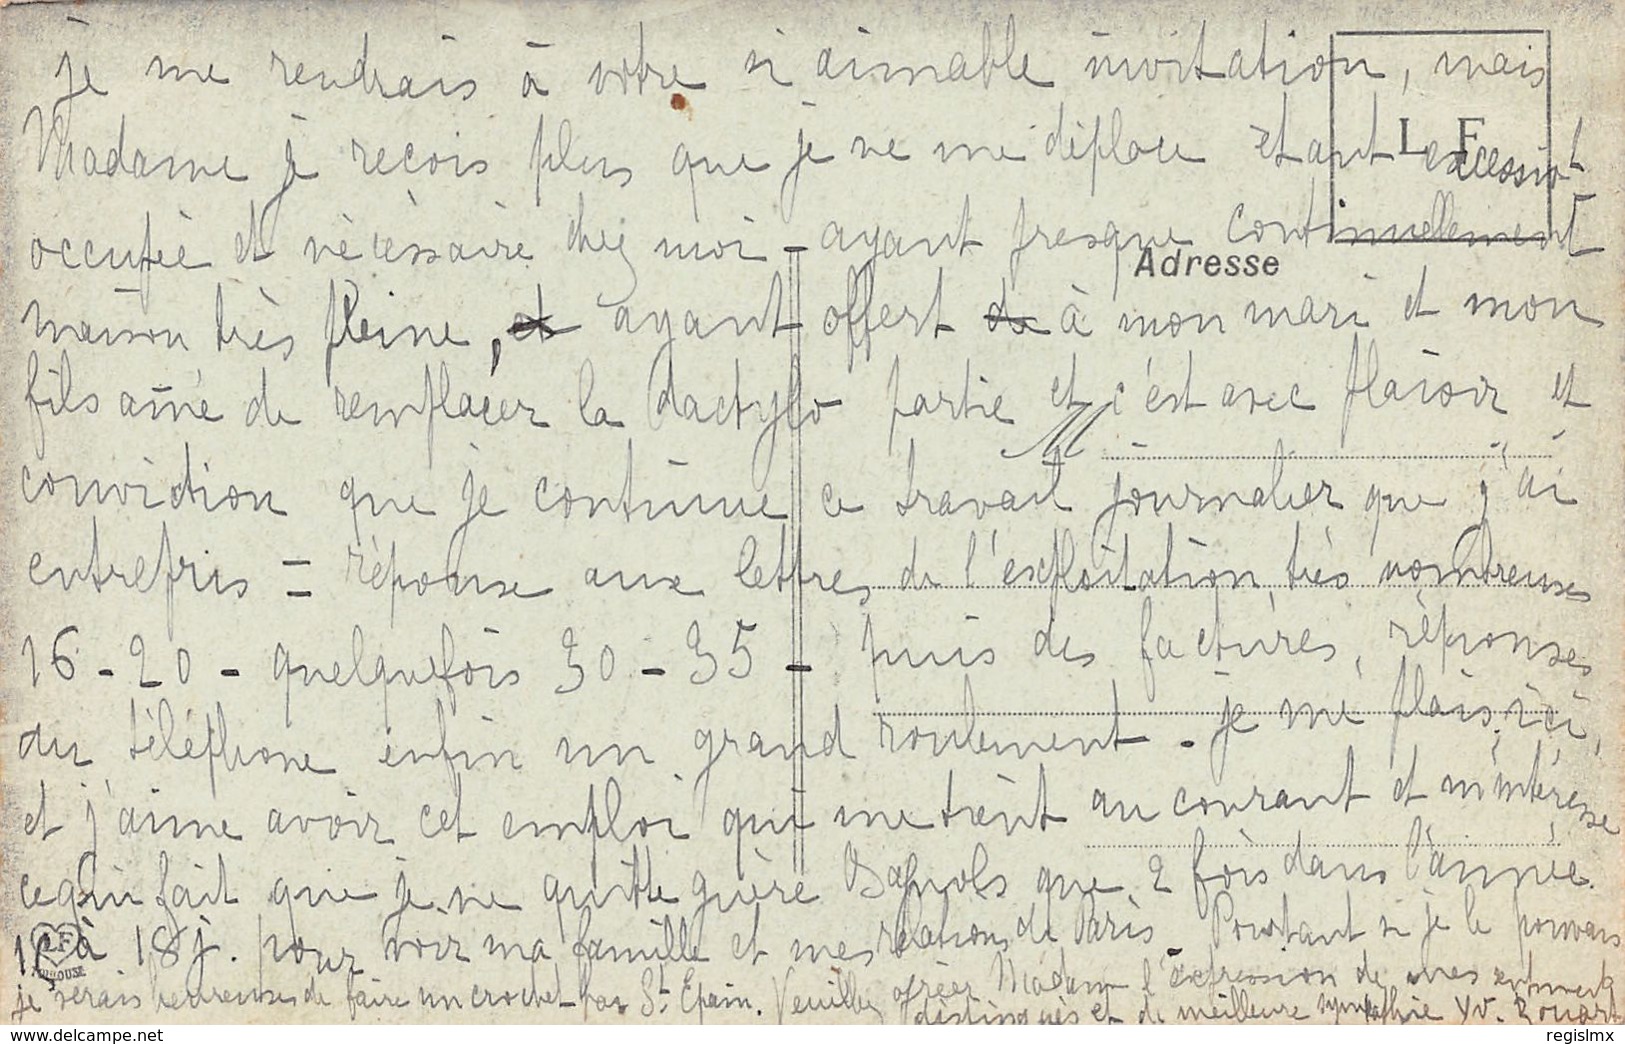 je me rendrais à votre si aimable invitation, mais
L F
Madame je reçois plus que je ne me déplace etant excessivt
occupée et nécéssaire chez moi - ayant presque continuellement
Adresse
maison très pleine, et ayant offert de à mon mari et mon
fils aîné de remplacer la dactylo partie et c'est avec plaisir et
M
conviction que je continue ce travail journalier que j'ai
entrepris = réponse aux lettres de l'exploitation, très nombreuses
16 - 20 - quelquefois 30 - 35 - puis des factures, réponses
au téléphone enfin un grand roulement - je me plais ici,
et j'aime avoir cet emploi qui me tient au courant et m'intéresse
ce qui fait que je ne quitte guère Bagnols que 2 fois dans l'année
à 18 j. pour voir ma famille et mes relations de Paris - Pourtant si je le pouvais
LF
TOULOUSE
je serais heureuse de faire un crochet par St Epain. Veuillez agréer Madame l'expression de mes sentiments
distingués et de meilleure sympathie Yv. Rouart
delcampe.net
regislmx